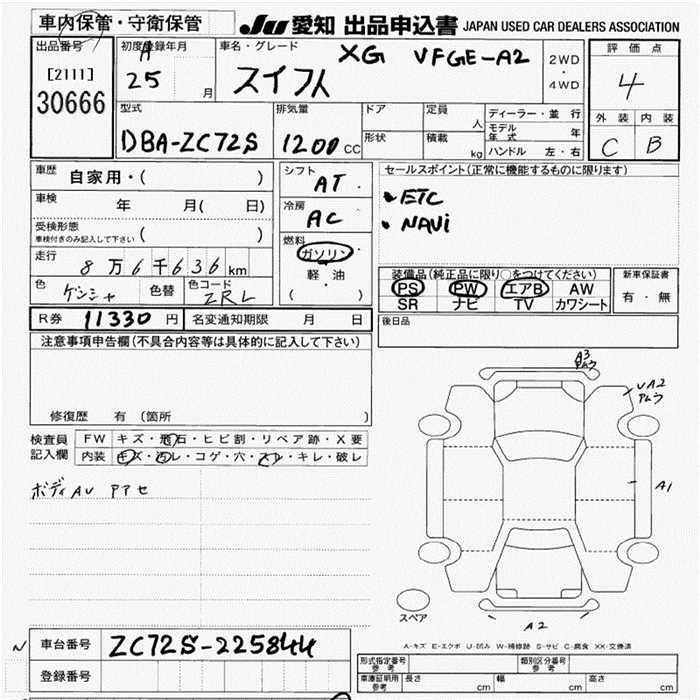 車内保管・守衛保管 JU 愛知 出品申込書 JAPAN USED CAR DEALERS ASSOCIATION
出品番号 初度登録年月 車名・グレード XG VFGE-A2 2WD・4WD 評価点
[2111] A 25 月 スイフト 4
30666
型式 排気量 ドア 定員 人 ディーラー・並行 外装 内装
DBA-ZC72S 1200 CC 形状 積載 kg モデル年式 年 C B
ハンドル 左・右
車歴 自家用・( ) シフト AT セールスポイント(正常に機能するものに限ります)
車検 年 月( 日) 冷房 AC • ETC
受検形態 車検付きのみ記入して下さい ( ) • NAVi
燃料 ガソリン
走行 8万6千636km 軽油 装備品(純正品に限り○をつけてください) 新車保証書
色 色替 色コード ZRL ( ) PS PW エアB AW 有・無
SR ナビ TV カワシート
R券 11330円 名変通知期限 月 日 後日品
注意事項申告欄(不具合内容等は具体的に記入して下さい)
A3
UA2
修復歴 有 (箇所 )
検査員 FW キズ・飛石・ヒビ割・リペア跡・X要
記入欄 内装 キズ・汚レ・コゲ・穴・スレ・キレ・破レ
ボディAU A1
スペア
A2
車台番号 ZC72S-225844 A-キズ E-エクボ U-凹み W-補修跡 S-サビ C-腐食 XX-交換済
登録番号 型式指定番号 参考 類別区分番号 参考
車庫証明用 参考 長さ cm 幅 cm 高さ cm